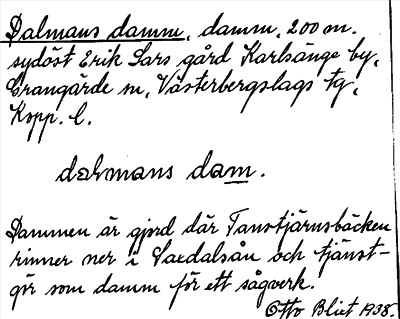 Dalmans damm, damm, 200 m.
sydöst Erik Lars gård Karlsänge by,
Grangärde sn, Västerbergslags tg,
Kopp. l.
dalmans dam.
Dammen är gjord där Tanstjärnsbäcken
rinner ner i Saxdalsån och tjänst-
gör som damm för ett sågverk.
Otto Blixt 1938.